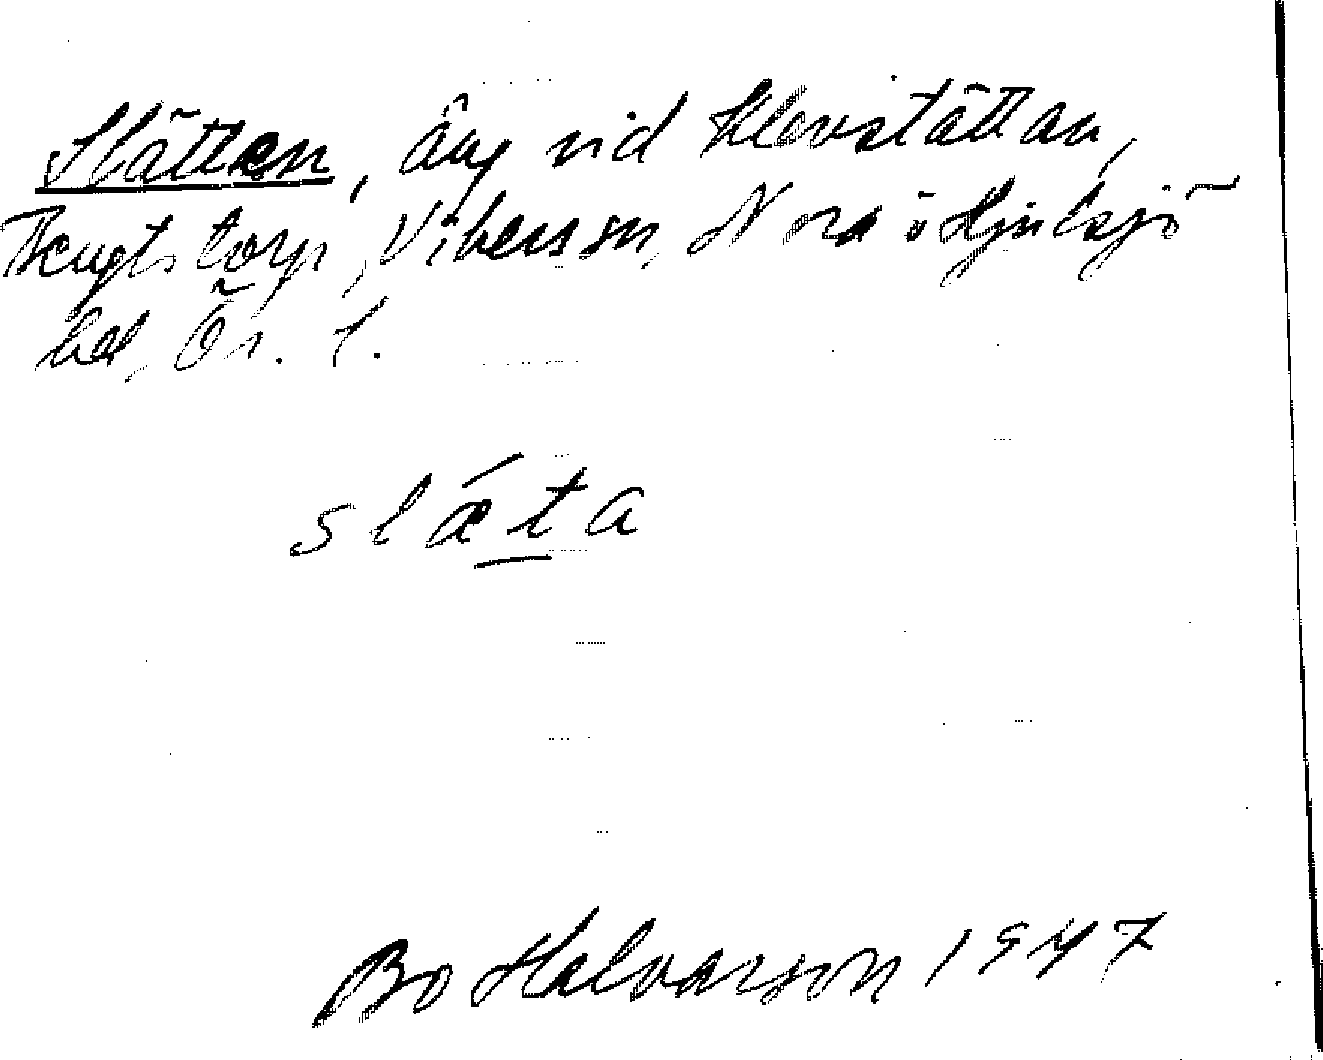 Slätten, äng vid Klovstättan,
Bengtstorp, Vibersson, Nora o Hjulsjö
bd, Ör. l.
slǽta
Bo Halvarson 1947